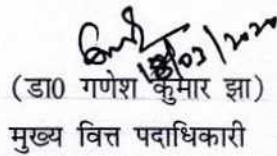 13/03/2020
(डा0 गणेश कुमार झा)
मुख्य वित्त पदाधिकारी